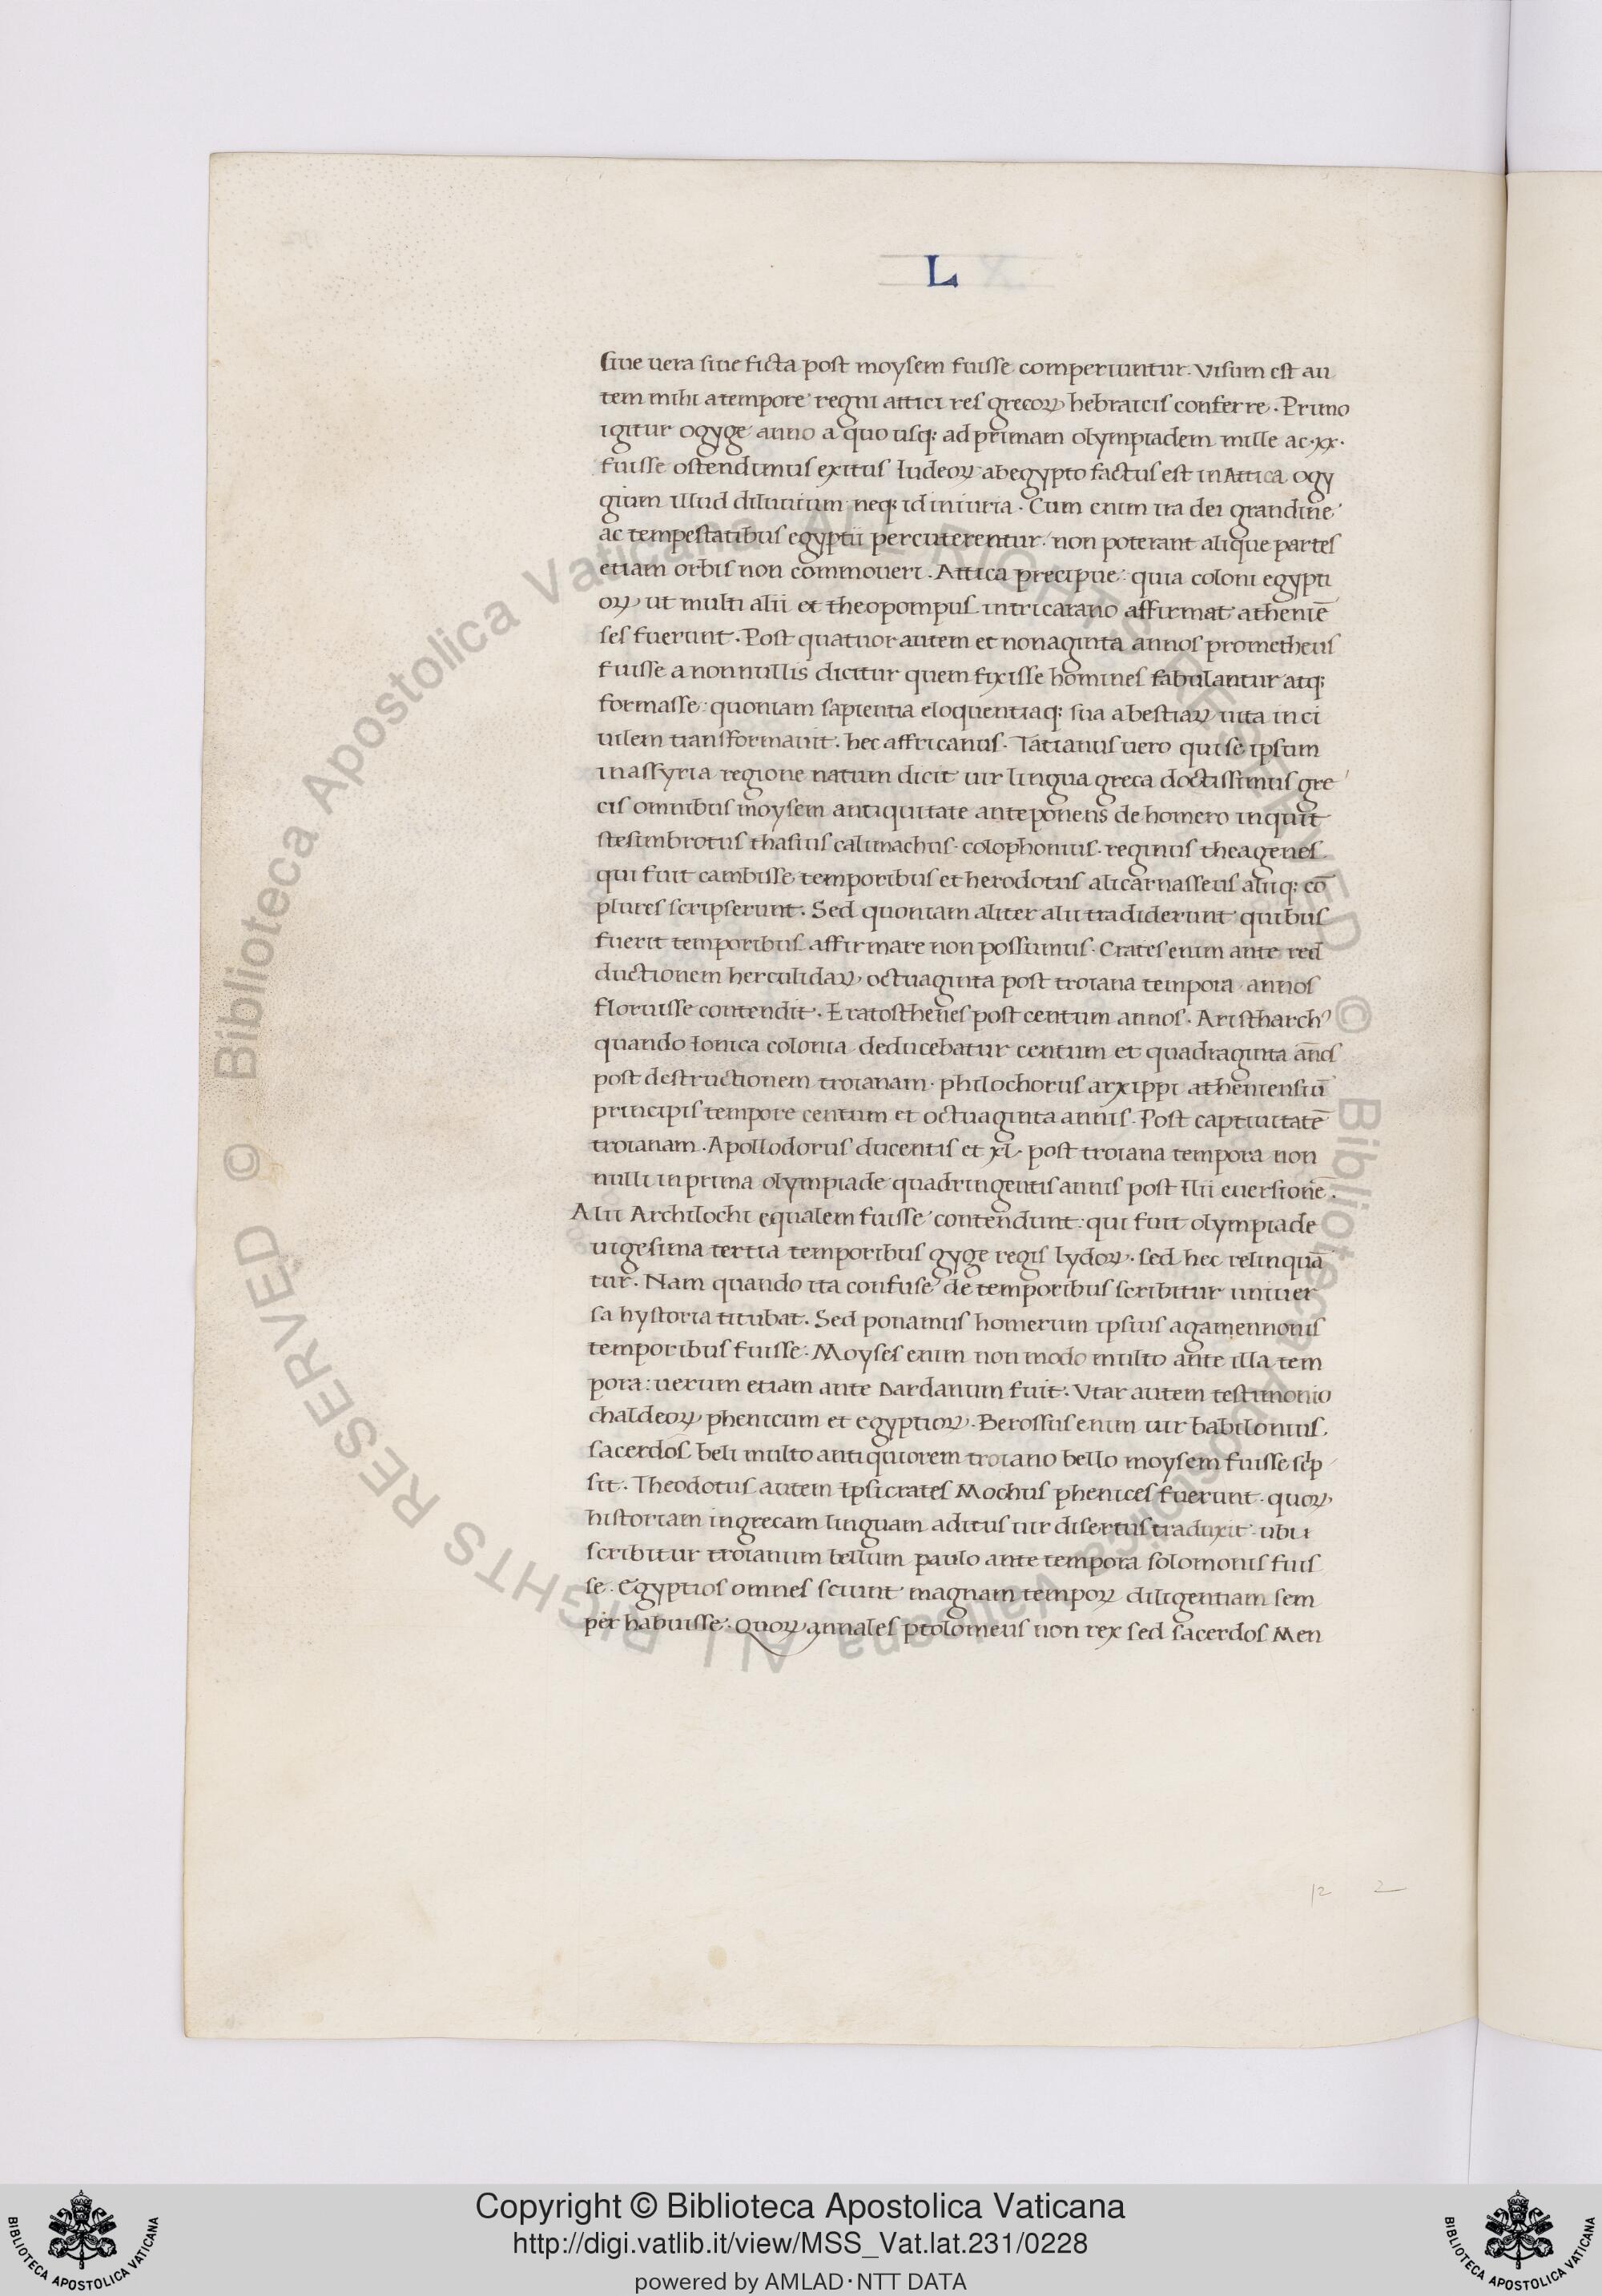 L
siue uera siue ficta post moysem fuisse comperiuntur. Visum est au
tem mihi a tempore regni attici res grecoꝝ hebraicis conferre. Primo
igitur ogyge anno a quo usqꝫ ad primam olympiadem mille ac .xx.
fuisse ostendimus exitus Iudeoꝝ ab egypto factus est in Attica ogy
gium illud diluuium neqꝫ id iniuria. Cum enim ira dei grandine
ac tempestatibus egyptii percuterentur: non poterant alique partes
etiam orbis non commoueri. Attica precipue: quia coloni egypti
oꝝ ut multi alii et theopompus in tricarano affirmat atheniē
ses fuerunt. Post quatuor autem et nonaginta annos prometheus
fuisse a nonnullis dicitur quem fixisse homines fabulantur atqꝫ
formasse: quoniam sapientia eloquentiaqꝫ sua a bestiaꝝ uita in ci
uilem transformauit. hec affricanus. Tatianus uero qui se ipsum
in assyria regione natum dicit uir lingua greca doctissimus gre
cis omnibus moysem antiquitate anteponens de homero inquit
stesimbrotus thasius calimachus. colophonius. reginus theagenes.
qui fuit cambisse temporibus et herodotus alicarnasseus aliiqꝫ cō
plures scripserunt. Sed quoniam aliter alii tradiderunt quibus
fuerit temporibus affirmare non possumus. Crates enim ante red
ductionem herculidaꝝ octuaginta post troiana tempora annos
floruisse contendit. Eratosthenes post centum annos. Aristharchꝰ
quando Ionica colonia deducebatur centum et quadraginta ānos
post destructionem troianam. philochorus arxippi atheniensiū
principis tempore centum et octuaginta annis. Post captiuitatē
troianam. Apollodorus ducentis et xl. post troiana tempora non
nulli in prima olympiade quadringentis annis post Ilii euersionē.
Alii Archilochi equalem fuisse contendunt: qui fuit olympiade
uigesima tertia temporibus gyge regis lydoꝝ. sed hec relinquā
tur. Nam quando ita confuse de temporibus scribitur uniuer
sa hystoria titubat. Sed ponamus homerum ipsius agamennonis
temporibus fuisse: Moyses enim non modo multo ante illa tem
pora: uerum etiam ante Dardanum fuit. Vtar autem testimonio
chaldeoꝝ phenicum et egyptioꝝ. Berossus enim uir babilonius.
sacerdos beli multo antiquiorem troiano bello moysem fuisse scͥp
sit. Theodotus autem Ipsicrates Mochus phenices fuerunt. quoꝝ
historiam in grecam linguam aditus uir disertus traduxit. ubi
scribitur troianum bellum paulo ante tempora solomonis fuis
se. Egyptios omnes sciunt magnam tempoꝝ diligentiam sem
per habuisse: Quoꝝ annales ptolomeus non rex sed sacerdos Men
12 2
© Biblioteca Apostolica Vaticana ALL RIGHTS RESERVED
© Biblioteca Apostolica Vaticana ALL RIGHTS RESERVED
Copyright © Biblioteca Apostolica Vaticana
http://digi.vatlib.it/view/MSS_Vat.lat.231/0228
powered by AMLAD·NTT DATA
BIBLIOTECA APOSTOLICA VATICANA
BIBLIOTECA APOSTOLICA VATICANA